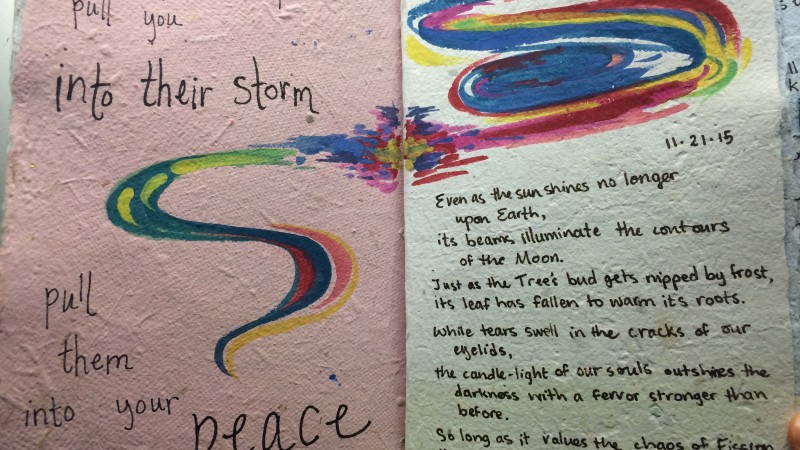 pull you
into their storm
pull
them
into your
peace
11.21.15
Even as the sun shines no longer
upon Earth,
its beams illuminate the contours
of the Moon.
Just as the Tree's bud gets nipped by frost,
its leaf has fallen to warm it's roots.
While tears swell in the cracks of our
eyelids,
the candle-light of our souls outshines the
darkness with a fervor stronger than
before.
So long as it values the chaos of Fission